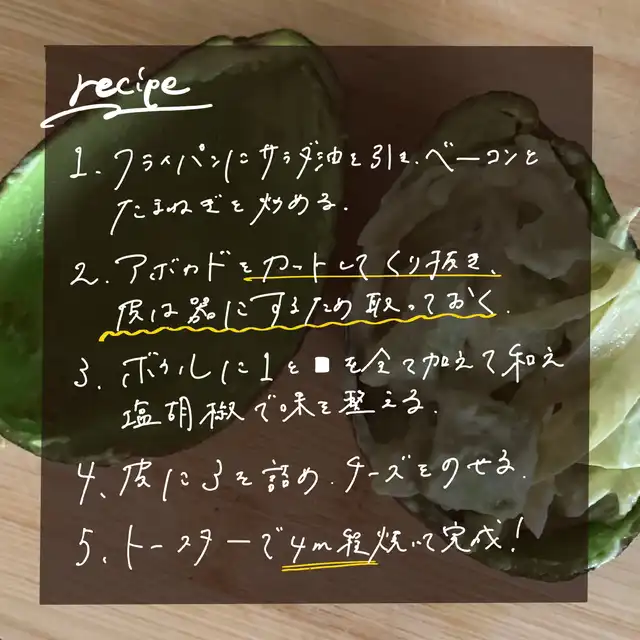 recipe
1. フライパンにサラダ油を引き、ベーコンと
たまねぎを炒める.
2. アボカドをカットしてくり抜き、
皮は器にするため取っておく.
3. ボウルに1と■を全て加えて和え
塩胡椒で味を整える.
4、皮に3を詰め、チーズをのせる.
5、トースターで4m程焼いて完成!